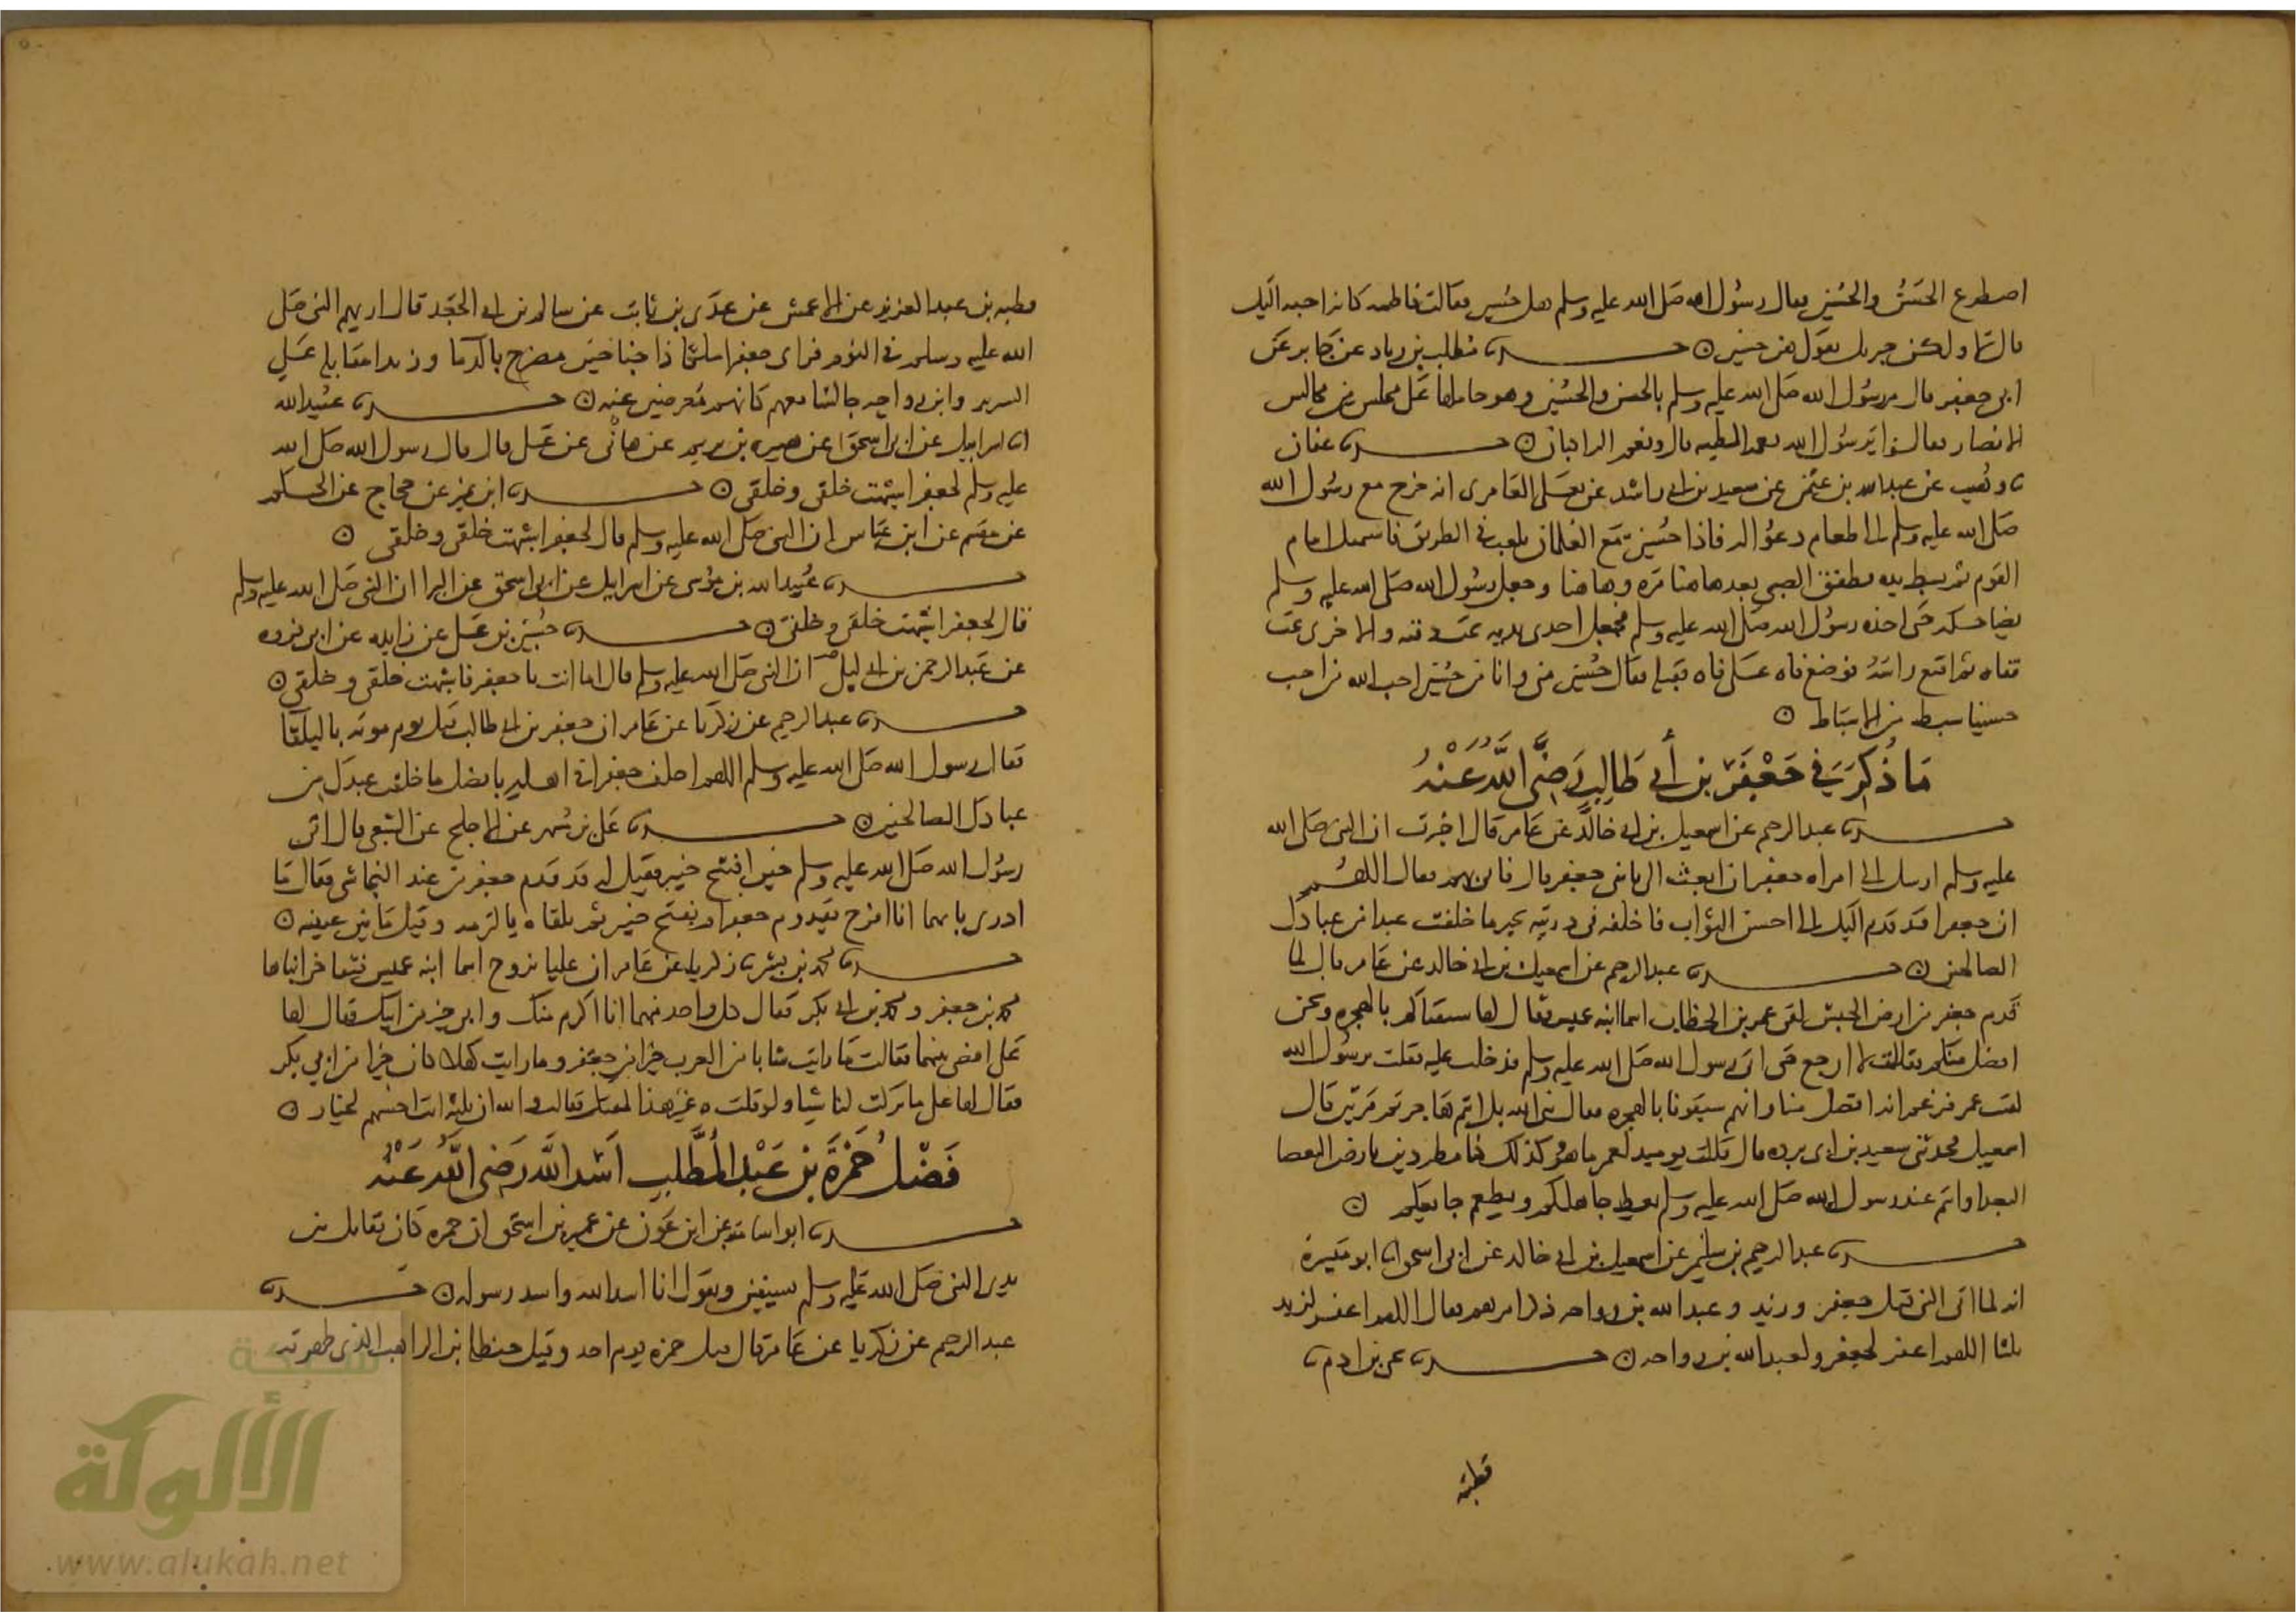 اصطرع الحسن والحسين فقال رسول الله صلى الله عليه وسلم هل حسين فقالت فاطمة كانه احب اليك
قال لا ولكن جبريل يقول هي حسين ○ حدثنا مطلب بن زياد عن جابر عن
ابي جعفر قال مر رسول الله صلى الله عليه وسلم بالحسن والحسين وهو حاملهما على مجلس من مجالس
الانصار فقالوا يا رسول الله نعم المطية قال ونعم الراكبان ○ حدثنا عفان
نا وهيب عن عبد الله بن عثمن عن سعيد بن ابي راشد عن يعلى العامري انه خرج مع رسول الله
صلى الله عليه وسلم الى طعام دعوا له فاذا حسين مع الغلمان يلعب في الطريق فاستمثل امام
القوم ثم بسط يده وطفق الصبي يفر هاهنا مره وهاهنا وجعل رسول الله صلى الله عليه وسلم
يضاحكه حتى اخذه رسول الله صلى الله عليه وسلم فجعل احدى يديه تحت ذقنه والاخرى تحت
قفاه ثم اقنع راسه فوضع فاه على فاه فقبله فقال حسين مني وانا من حسين احب الله من احب
حسينا سبط من الاسباط ○
مَا ذُكِرَ فِي جَعْفَر بن أبي طَالِب رَضِيَ اللَّهُ عَنْهُ
حدثنا عبد الرحيم عن اسمعيل بن ابي خالد عن عامر قال اخبرت ان النبي صلى الله
عليه وسلم ارسل الى امراه جعفر ان ابعثي الي بني جعفر قال فاتي بهم فقال اللهم
ان جعفرا قد قدم اليك الى احسن الثواب فاخلفه في ذريته بخير ما خلفت عبدا من عبادك
الصالحين ○ حدثنا عبد الرحيم عن اسمعيل بن ابي خالد عن عامر قال لما
قدم جعفر من ارض الحبش لقي عمر بن الخطاب اسما ابنه عميس فقال لها سبقناكم بالهجره ونحن
افضل منكم فقالت لا ارجع حتى اتي رسول الله صلى الله عليه وسلم فدخلت عليه فقلت يرسول الله
لقيت عمر فزعم انه افضل منا وانهم سبقونا بالهجره فقال نبي الله بل انتم هاجرتم مرتين قال
اسمعيل فحدثني سعيد بن ابي برده قال قالت يوميذ لعمر ما هو كذلك كنا مطردين بارض البعضا
البعدا وانتم عند رسول الله صلى الله عليه وسلم يعظ جاهلكم ويطعم جايعكم ○
حدثنا عبد الرحيم بن سليمن عن اسمعيل بن ابي خالد عن ابي اسحق نا ابو ميسرة
انه لما اتى النبي قتل جعفر وزيد وعبد الله بن رواحه ذكر امرهم فقال اللهم اغفر لزيد
ثلثا اللهم اغفر لجعفر ولعبد الله بن رواحه ○ حدثنا يحيى بن ادم نا
قطبة
قطبه بن عبد العزيز عن الاعمش عن عدي بن ثابت عن سالم بن ابي الجعد قال اريهم النبي صلى
الله عليه وسلم في النوم فراى جعفرا ملكا ذا جناحين مضرج بالدما وزيدا مقابله على
السرير وابن رواحه جالسا معهم كانهم معرضين عنه ○ حدثنا عبيد الله
نا اسراييل عن ابي اسحق عن هبيره بن يريم عن هانئ عن علي قال قال رسول الله صلى الله
عليه وسلم لجعفر اشبهت خلقي وخلقي ○ حدثنا ابن نمير عن حجاج عن الحكم
عن مقسم عن ابن عباس ان النبي صلى الله عليه وسلم قال لجعفر اشبهت خلقي وخلقي ○
حدثنا عبيد الله بن موسى عن اسرايل عن ابي اسحق عن البرا ان النبي صلى الله عليه وسلم
قال لجعفر اشبهت خلقي وخلقي ○ حدثنا حسين بن علي عن زايده عن ابي فروه
عن عبد الرحمن بن ابي ليلى ان النبي صلى الله عليه وسلم قال اما انت يا جعفر فاشبهت خلقي وخلقي ○
حدثنا عبد الرحيم عن زكريا عن عامر ان جعفر بن ابي طالب قتل يوم موته بالبلقا
فقال رسول الله صلى الله عليه وسلم اللهم اخلف جعفرا في اهله بافضل ما خلفت عبدك من
عبادك الصالحين ○ حدثنا علي بن مسهر عن الاجلح عن الشعبي قال اتى
رسول الله صلى الله عليه وسلم حين افتتح خيبر فقيل له قد قدم جعفر من عند النجاشي فقال ما
ادري بايهما انا افرح بقدوم جعفر او بفتح خيبر ثم تلقاه فالتزمه وقبل ما بين عينيه ○
حدثنا محمد بن بشر نا زكريا عن عامر ان عليا تزوج اسما ابنه عميس فتفاخر ابناها
محمد بن جعفر ومحمد بن ابي بكر فقال كل واحد منهما انا اكرم منك وابي خير من ابيك فقال لها
علي اقضي بينهما فقالت ما رايت شابا من العرب خيرا من جعفر وما رايت كهلا كان خيرا من ابي بكر
فقال لها علي ما تركت لنا شيا ولو قلت غير هذا لمقتك فقالت والله ان ثلثه انت اخسهم لخيار ○
فَضْلُ حَمْزَةَ بن عَبْدِ المُطَّلِبِ أَسَدِ اللَّهِ رَضِيَ اللَّهُ عَنْهُ
حدثنا ابو اسامة عن ابن عون عن عمير بن اسحق ان حمزه كان يقاتل بين
يدي النبي صلى الله عليه وسلم بسيفين ويقول انا اسد الله واسد رسوله ○ حدثنا
عبد الرحيم عن زكريا عن عامر قال قتل حمزه يوم احد وقتل حنظله بن الراهب الذي طهرته
شبكة
الألوكة
www.alukah.net